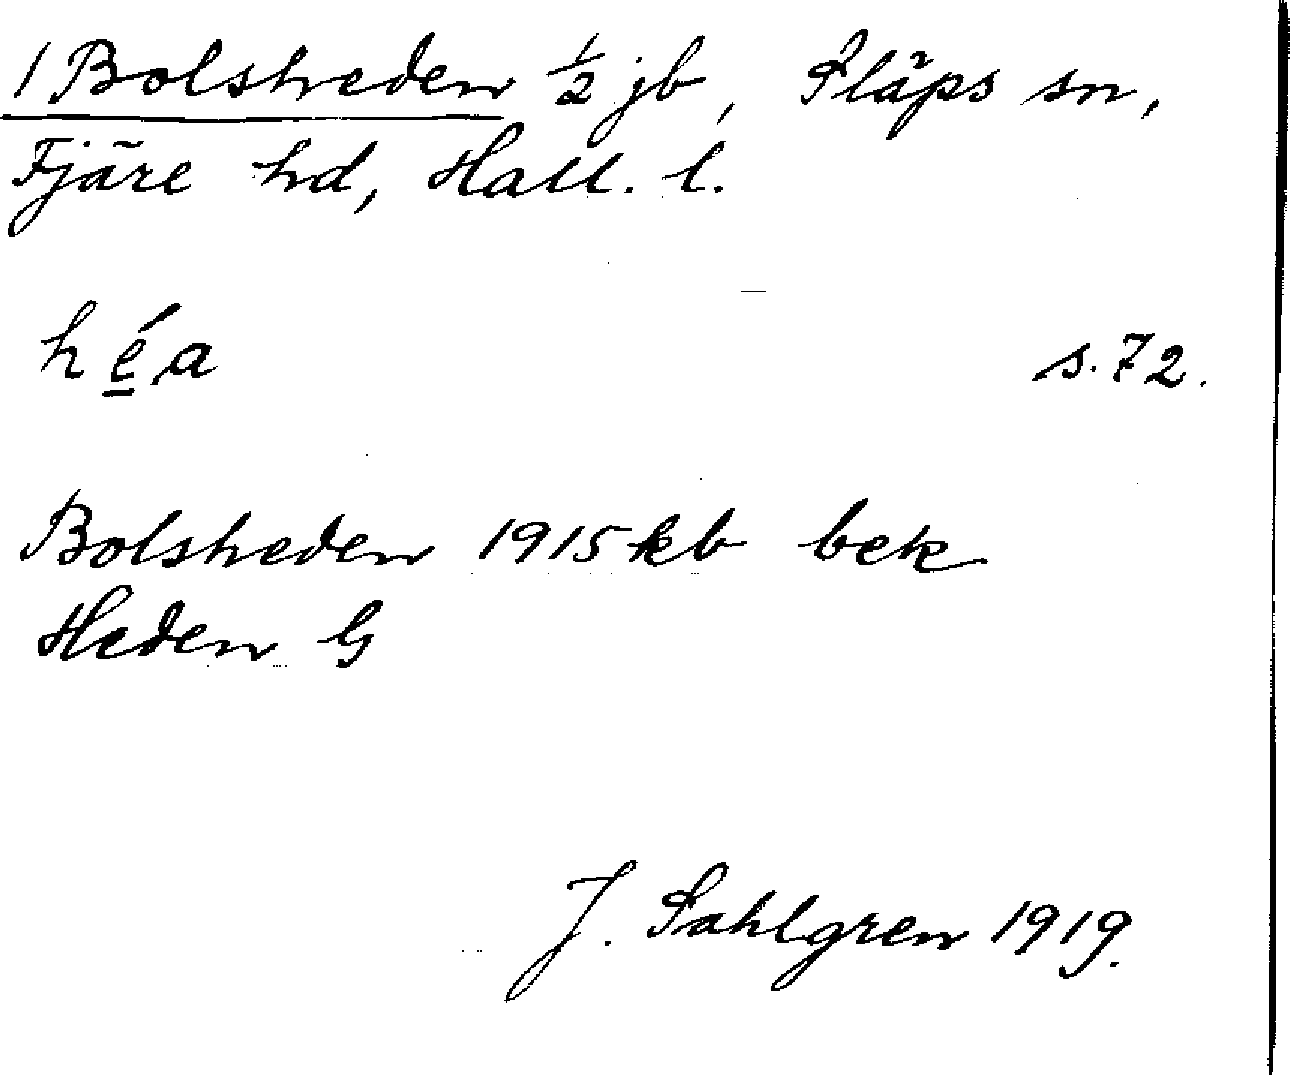 1 Bolsheden ½ jb, Släps sn,
Fjäre hd, Hall. l.
hé̲a s. 72.
Bolsheden 1915 kb bek
Heden G
J. Sahlgren 1919.